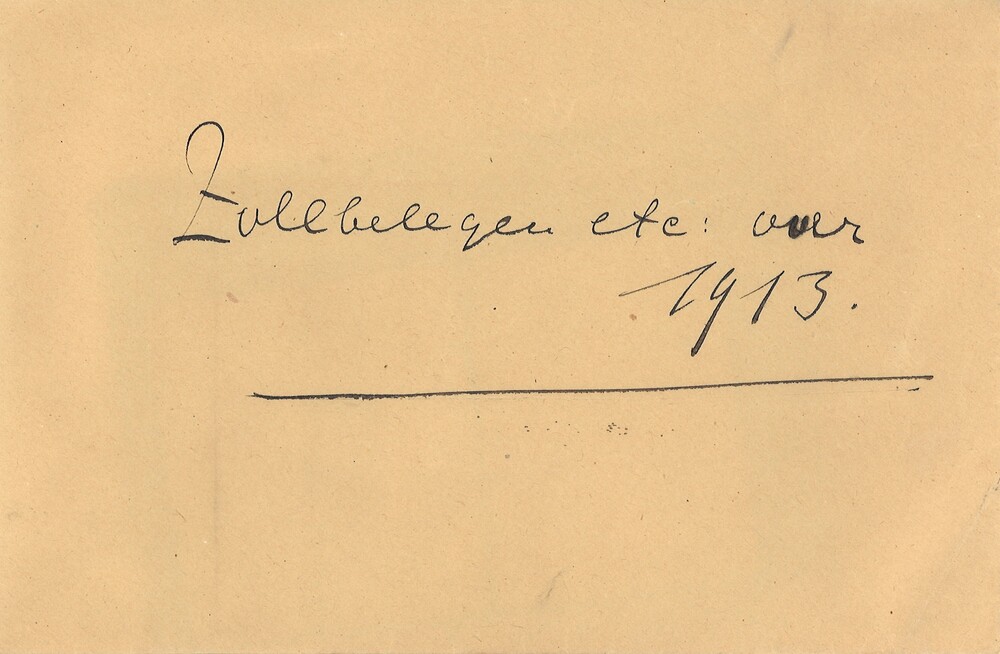 Zollbelegen etc: over
1913.